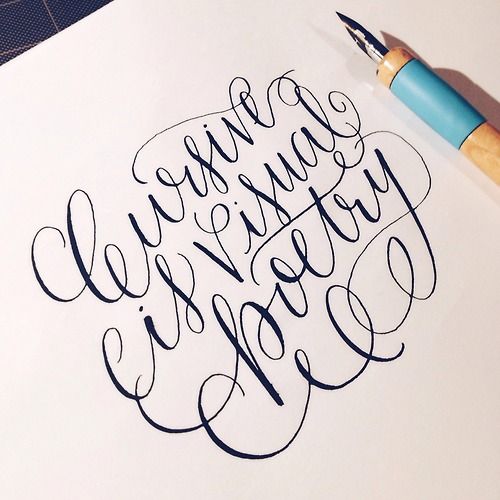 Cursive
is visual
poetry